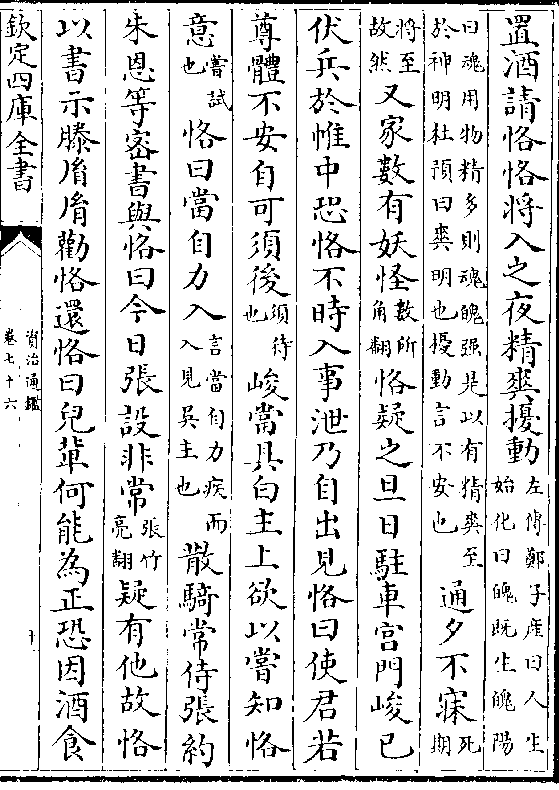 置酒請恪恪將入之夜精爽擾動左傳鄭子產曰人生始化曰魄既生魄陽
曰魂用物精多則魂魄强是以有精爽至於神明杜預曰爽明也擾動言不安也通夕不寐死期
將至故然又家數有妖怪數所角翻恪疑之旦日駐車宫門峻已
伏兵於帷中恐恪不時入事泄乃自出見恪曰使君若
尊體不安自可須後須待也峻當具白主上欲以嘗知恪
意嘗試也恪曰當自力入言當自力疾而入見吳主也散騎常侍張約
朱恩等密書與恪曰今日張設非常張竹亮翻疑有他故恪
以書示滕胤胤勸恪還恪曰兒輩何能為正恐因酒食
欽定四庫全書
資治通鑑
卷七十六